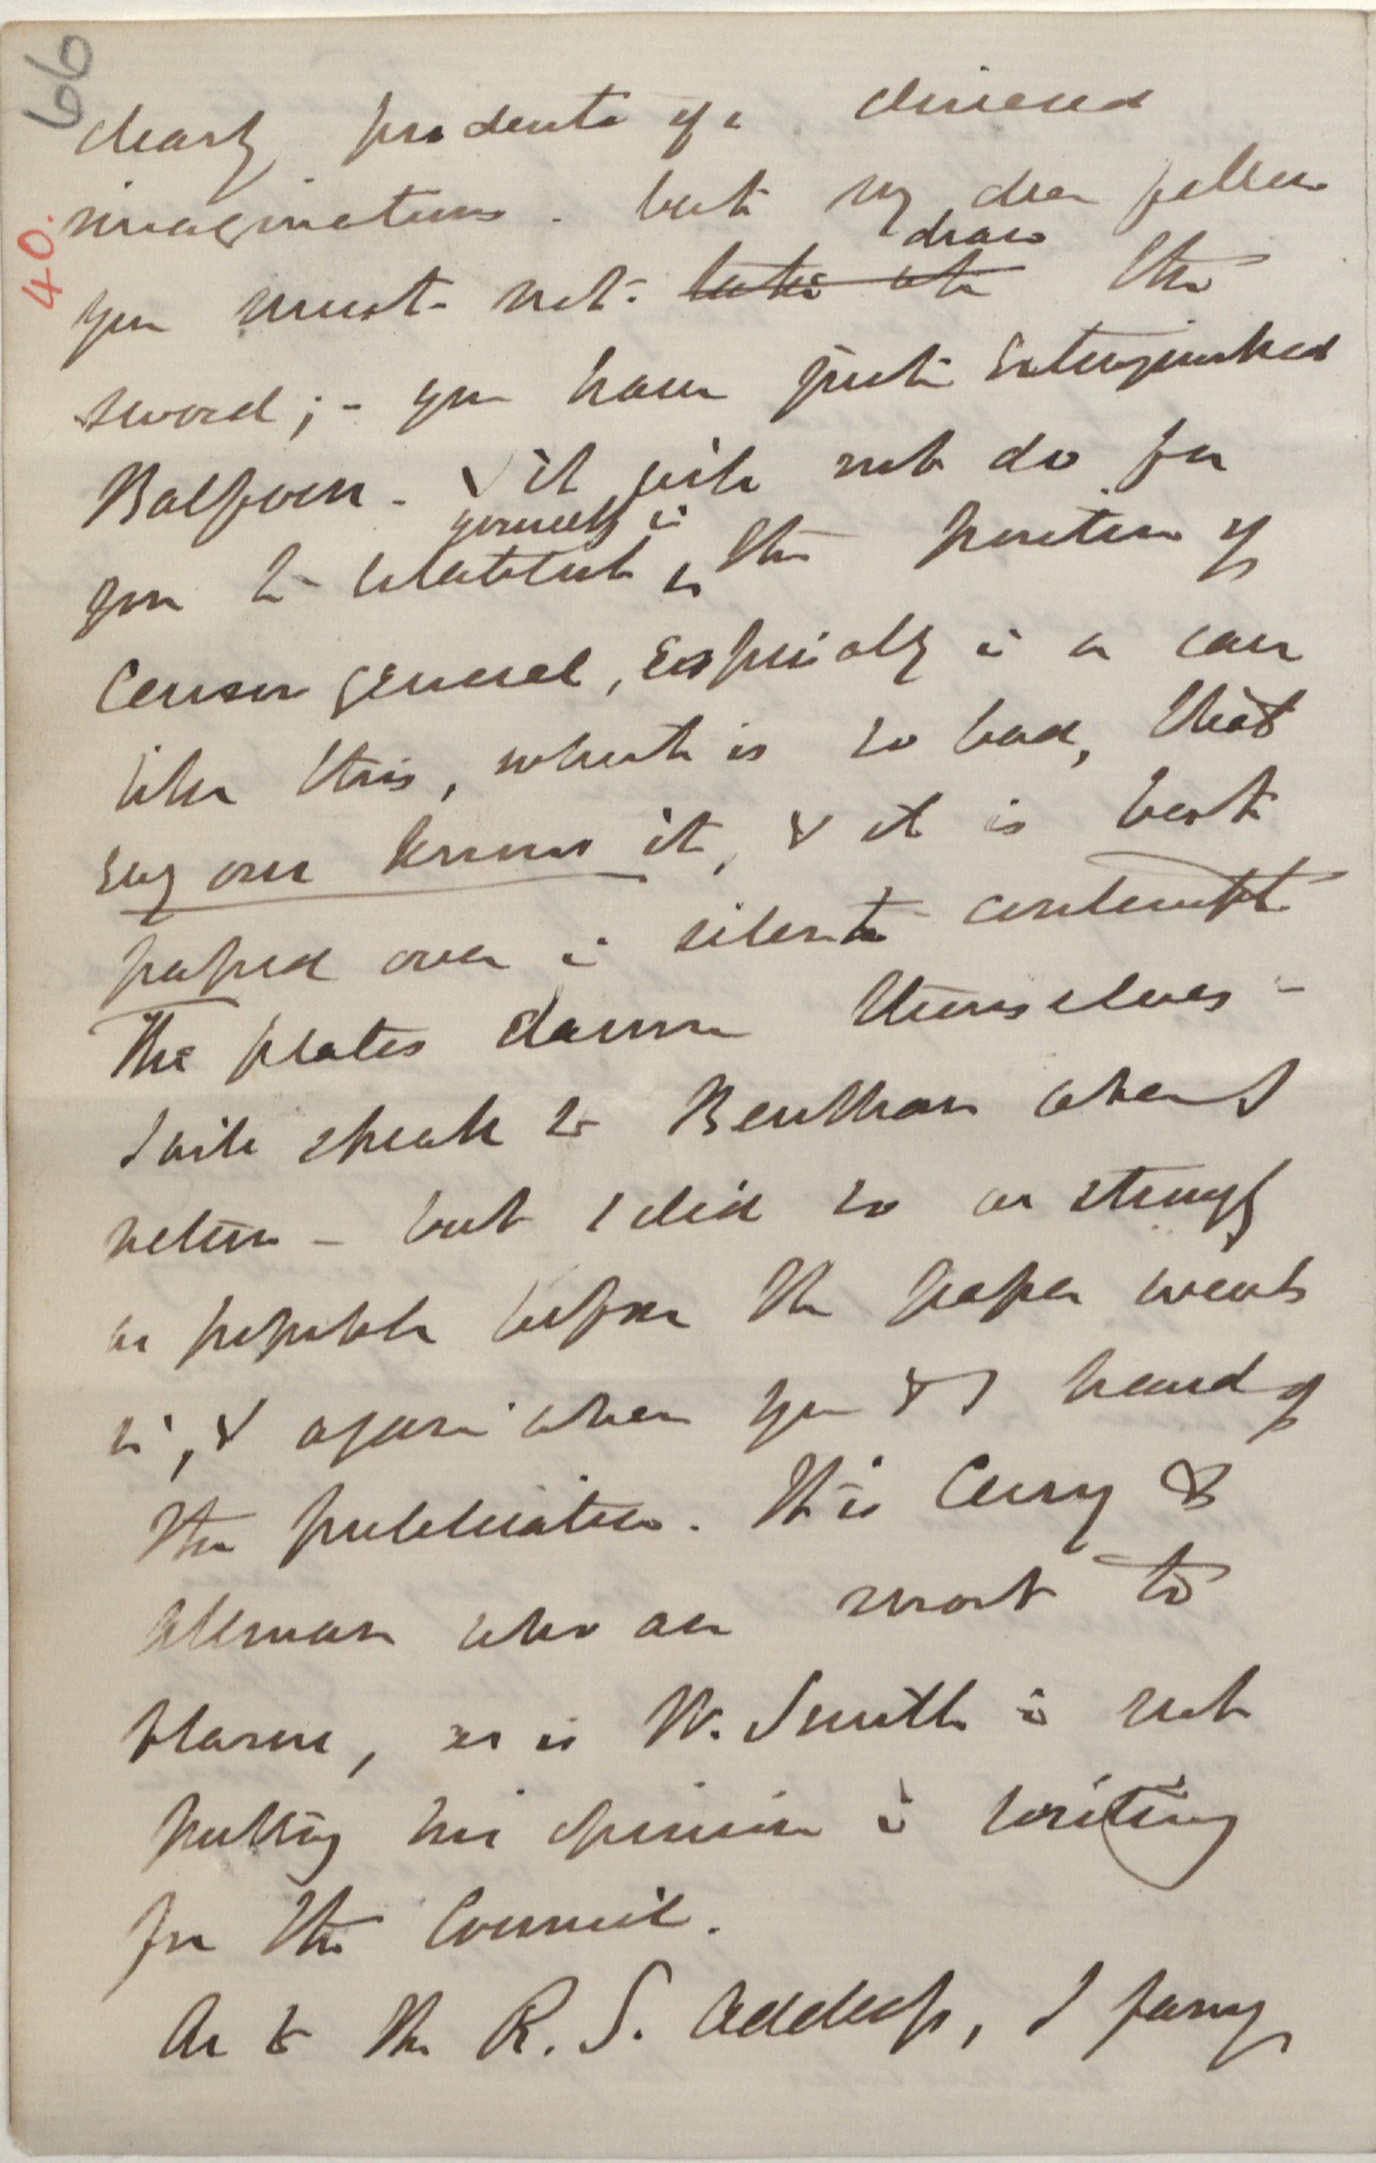 66
40.
clearly products of a diseased
imagination. but my dear fellow
you must not take up draw the
sword; - you have just extinguished
Balfour - & it will not do for
you to constitute yourself in the position of
Censor general, especially in a case
like this, which is so bad, that
every one knows it, & it is best
passed over in silent contempt
The plates damn themselves -
I will speak to Bentham when I
return - but I did so as strongly
as possible before the paper went
in, & again when you & I heard of
the publication. It is Currey &
Allman who are most to
blame, as is W. Smith in not
putting his opinion in writing
for the Council.
As to the R. S. address, I fancy